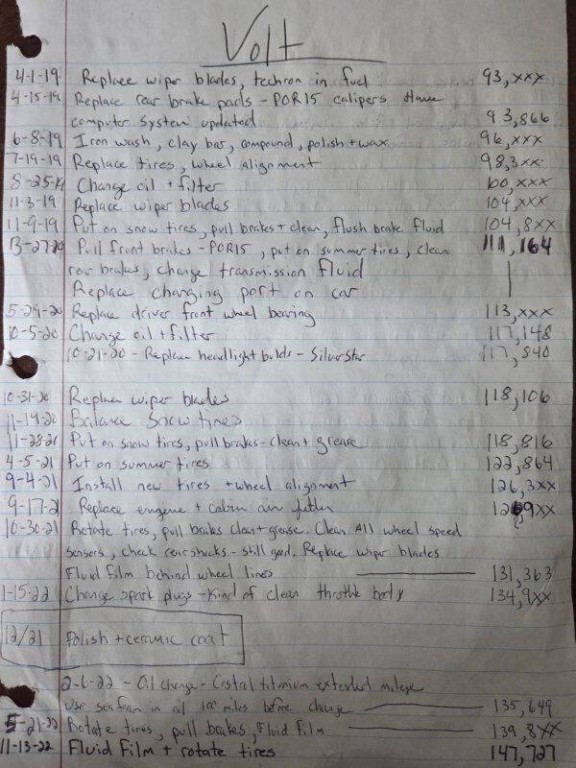 Volt
4-1-19 Replace wiper blades, techron in fuel 93,xxx
4-15-19 Replace rear brake pads - POR15 calipers Have
computer system updated 93,866
6-8-19 Iron wash, clay bar, compound, polish + wax 96,xxx
7-19-19 Replace tires, wheel alignment 98,3xx
8-25-19 Change oil + filter 100,xxx
11-3-19 Replace wiper blades 104,xxx
11-9-19 Put on snow tires, pull brakes + clean, flush brake fluid 104,8xx
3-27-20 Pull front brakes - POR15, put on summer tires, clean 111,164
rear brakes, change transmission fluid
Replace charging port on car
5-29-20 Replace driver front wheel bearing 113,xxx
10-5-20 Change oil + filter 117,148
10-21-20 - Replace headlight bulbs - SilverStar 117,840
10-31-20 Replace wiper blades 118,106
11-14-20 Balance Snow tires
11-28-20 Put on snow tires, pull brakes - clean + grease 118,816
4-5-21 Put on summer tires 122,864
9-4-21 Install new tires + wheel alignment 126,3xx
9-17-21 Replace engine + cabin air filter 9xx
10-30-21 Rotate tires, pull brakes clean + grease. Clean All wheel speed
sensors, check rear shocks - still good. Replace wiper blades
Fluid film behind wheel lines 131,363
1-15-22 Change spark plugs - Kind of clean throttle body 134,9xx
12/21 Polish + ceramic coat
2-6-22 - Oil change - Castrol titanium extended mileage
Use seafoam in oil 100 miles before change 135,649
5-21-22 Rotate tires, pull brakes, Fluid Film 139,8xx
11-13-22 Fluid Film + rotate tires 147,727